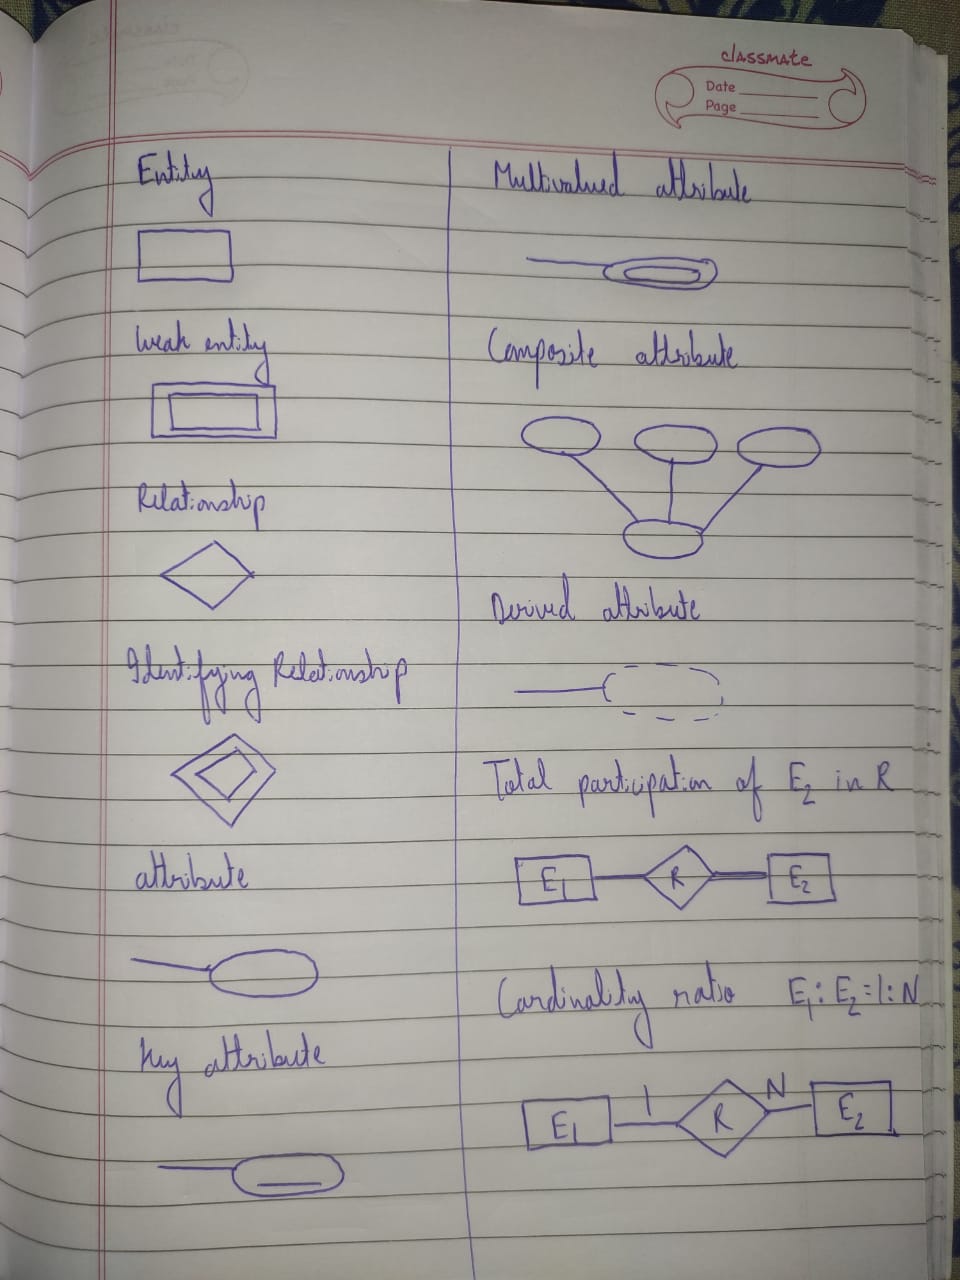 classmate
Date
Page
Entity
Weak entity
Relationship
Identifying Relationship
attribute
Key attribute
Multivalued attribute
Composite attribute
Derived attribute
Total participation of E₂ in R
E₁ R E₂
Cardinality ratio E₁:E₂=1:N
E₁ 1 R N E₂